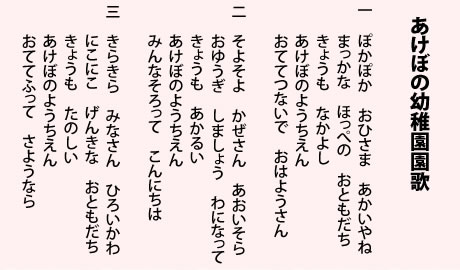 あけぼの幼稚園園歌
一
ぽかぽか　おひさま　あかいやね
まっかな　ほっぺの　おともだち
きょうも　なかよし
あけぼのようちえん
おててつないで　おはようさん
二
そよそよ　かぜさん　あおいそら
おゆうぎ　しましょう　わになって
きょうも　あかるい
あけぼのようちえん
みんなそろって　こんにちは
三
きらきら　みなさん　ひろいかわ
にこにこ　げんきな　おともだち
きょうも　たのしい
あけぼのようちえん
おててふって　さようなら